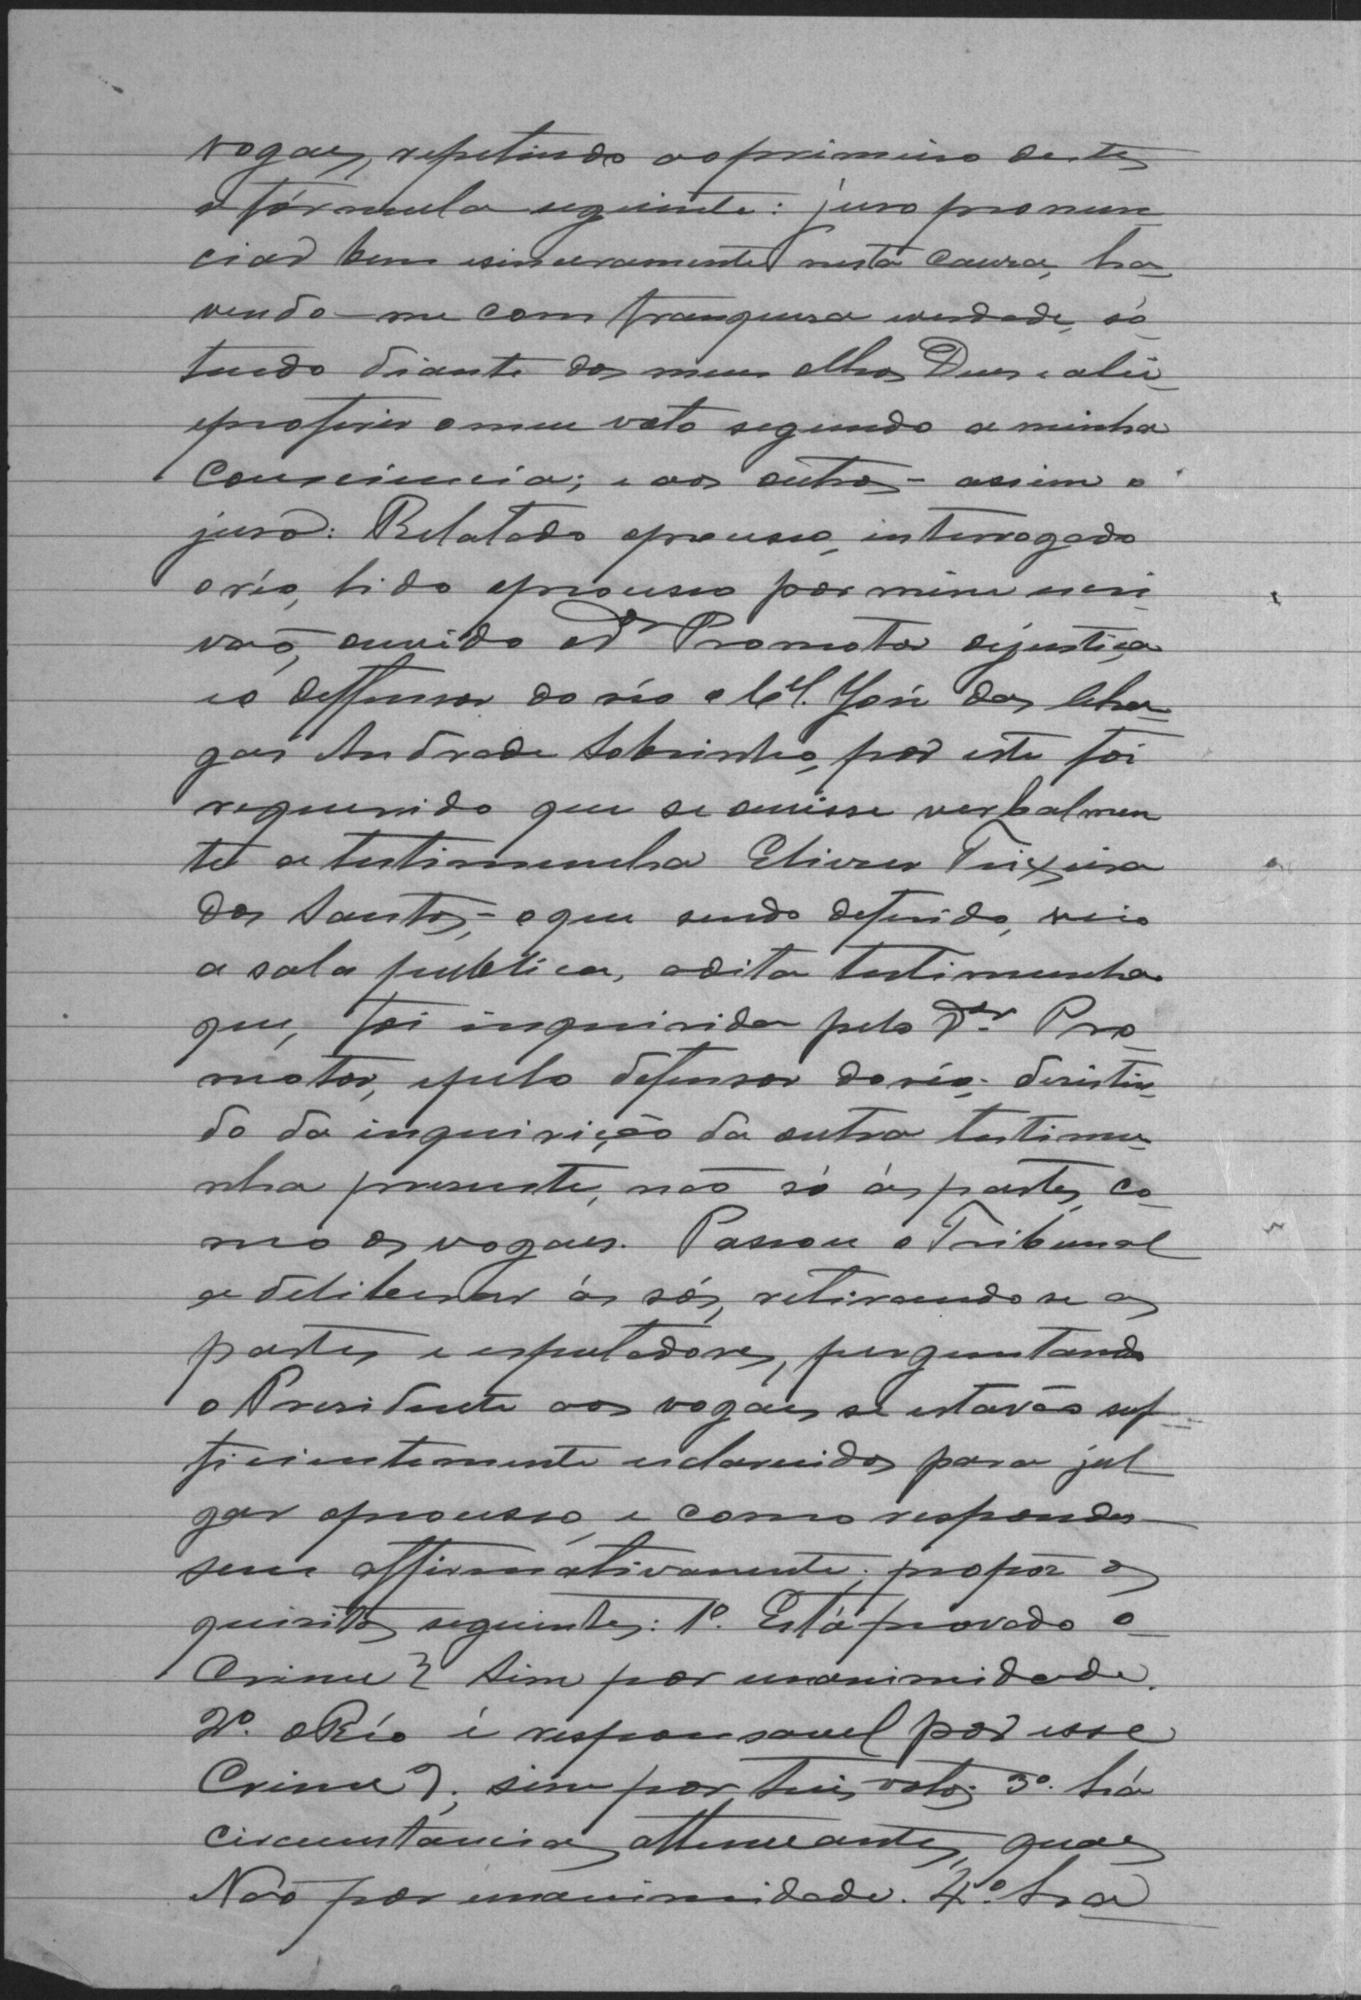 vogaes, repetindo ao primeiro destes
a fórmula seguinte: juro pronun-
ciar bem e sinceramente nesta causa, ha-
vendo-me com franqueza e verdade, só
tendo diante dos meus olhos Deus e a lei
e proferir o meu voto segundo a minha
consciencia; e aos outros - assim o
juro: Relatado o processo, interrogado
o réo, lido o processo por mim escri-
vão, ouvido o Dr Promotor dejustiça
e o deffensor do réo o Cel. José das Cha-
gas Andrade Sobrinho, por este foi
requerido que se ouvisse verbalmen
te a testimunha Teixeira
dos Santos,- o que sendo deferido, veio
a sala publica, a dita testimunha
que, foi inquirida pelo Dr. Pro-
motor, e pelo defensor do réo; desistin-
do da inquirição da outra testimu-
nha presente, não só ás partes, co-
mo os vogaes. Passou o Tribunal
a deliberar ás sós, retirando se as
partes e espectadores, perguntando
o Presidente aos vogaes se estavão suf-
ficientemente esclarecidos para jul
gar o processo, e como respondes-
sem affirmativamente, propoz os
quisitos seguintes: 1º. Está provado o
Crime? Sim por unanimidade.
2º. o Réo é responsavel por esse
Crime?; sim por tres votos; 3º. há
circumstancias attenuantes, quaes
Não por unanimidade. 4º. ha